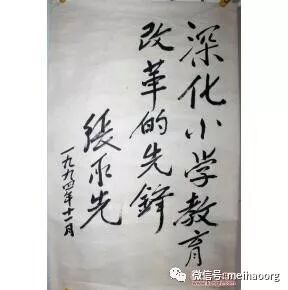 深化小学教育
改革的先锋
张承先
一九九四年十一月
微信号:meihaoorg